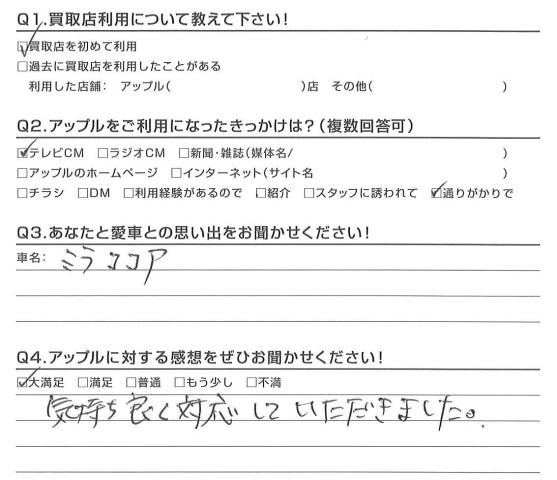 Q1.買取店利用について教えて下さい!
☑買取店を初めて利用
□過去に買取店を利用したことがある
利用した店舗: アップル( )店 その他( )
Q2.アップルをご利用になったきっかけは?(複数回答可)
☑テレビCM □ラジオCM □新聞・雑誌(媒体名/ )
□アップルのホームページ □インターネット(サイト名 )
□チラシ □DM □利用経験があるので □紹介 □スタッフに誘われて ☑通りがかりで
Q3.あなたと愛車との思い出をお聞かせください!
車名: ミラココア
Q4.アップルに対する感想をぜひお聞かせください!
☑大満足 □満足 □普通 □もう少し □不満
気持ち良く対応していただきました。